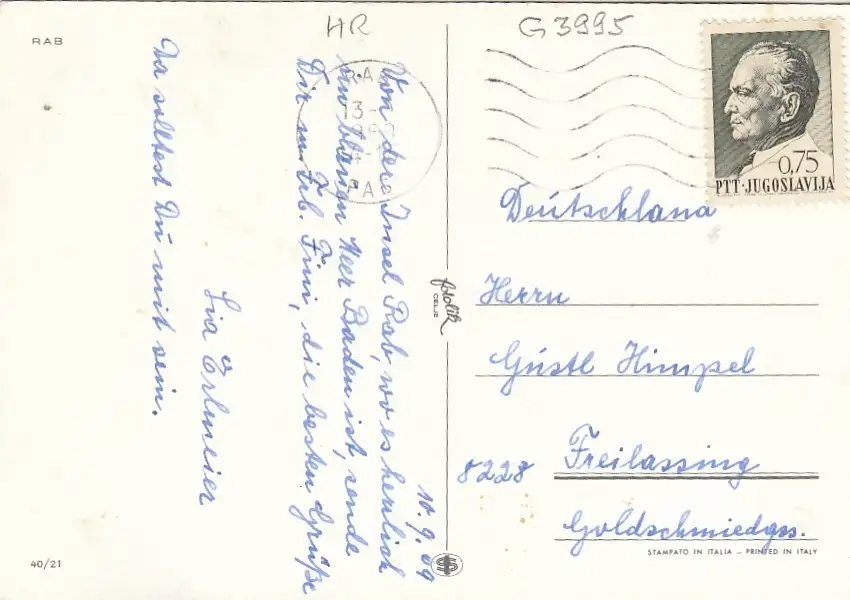 HR
G 3995
RAB
0,75
PTT·JUGOSLAVIJA
10.9.69
Von der Insel Rab, wo es herrlich
im blauen Meer Baden ist, sende
Dir u. Frb. Fini, die besten Grüße
Lia Erlmeier
Da solltest Du mit sein.
fotolik
CELJE
Deutschland
Herrn
Gustl Himpel
8228 Freilassing
Goldschmiedgss.
STAMPATO IN ITALIA – PRINTED IN ITALY
40/21